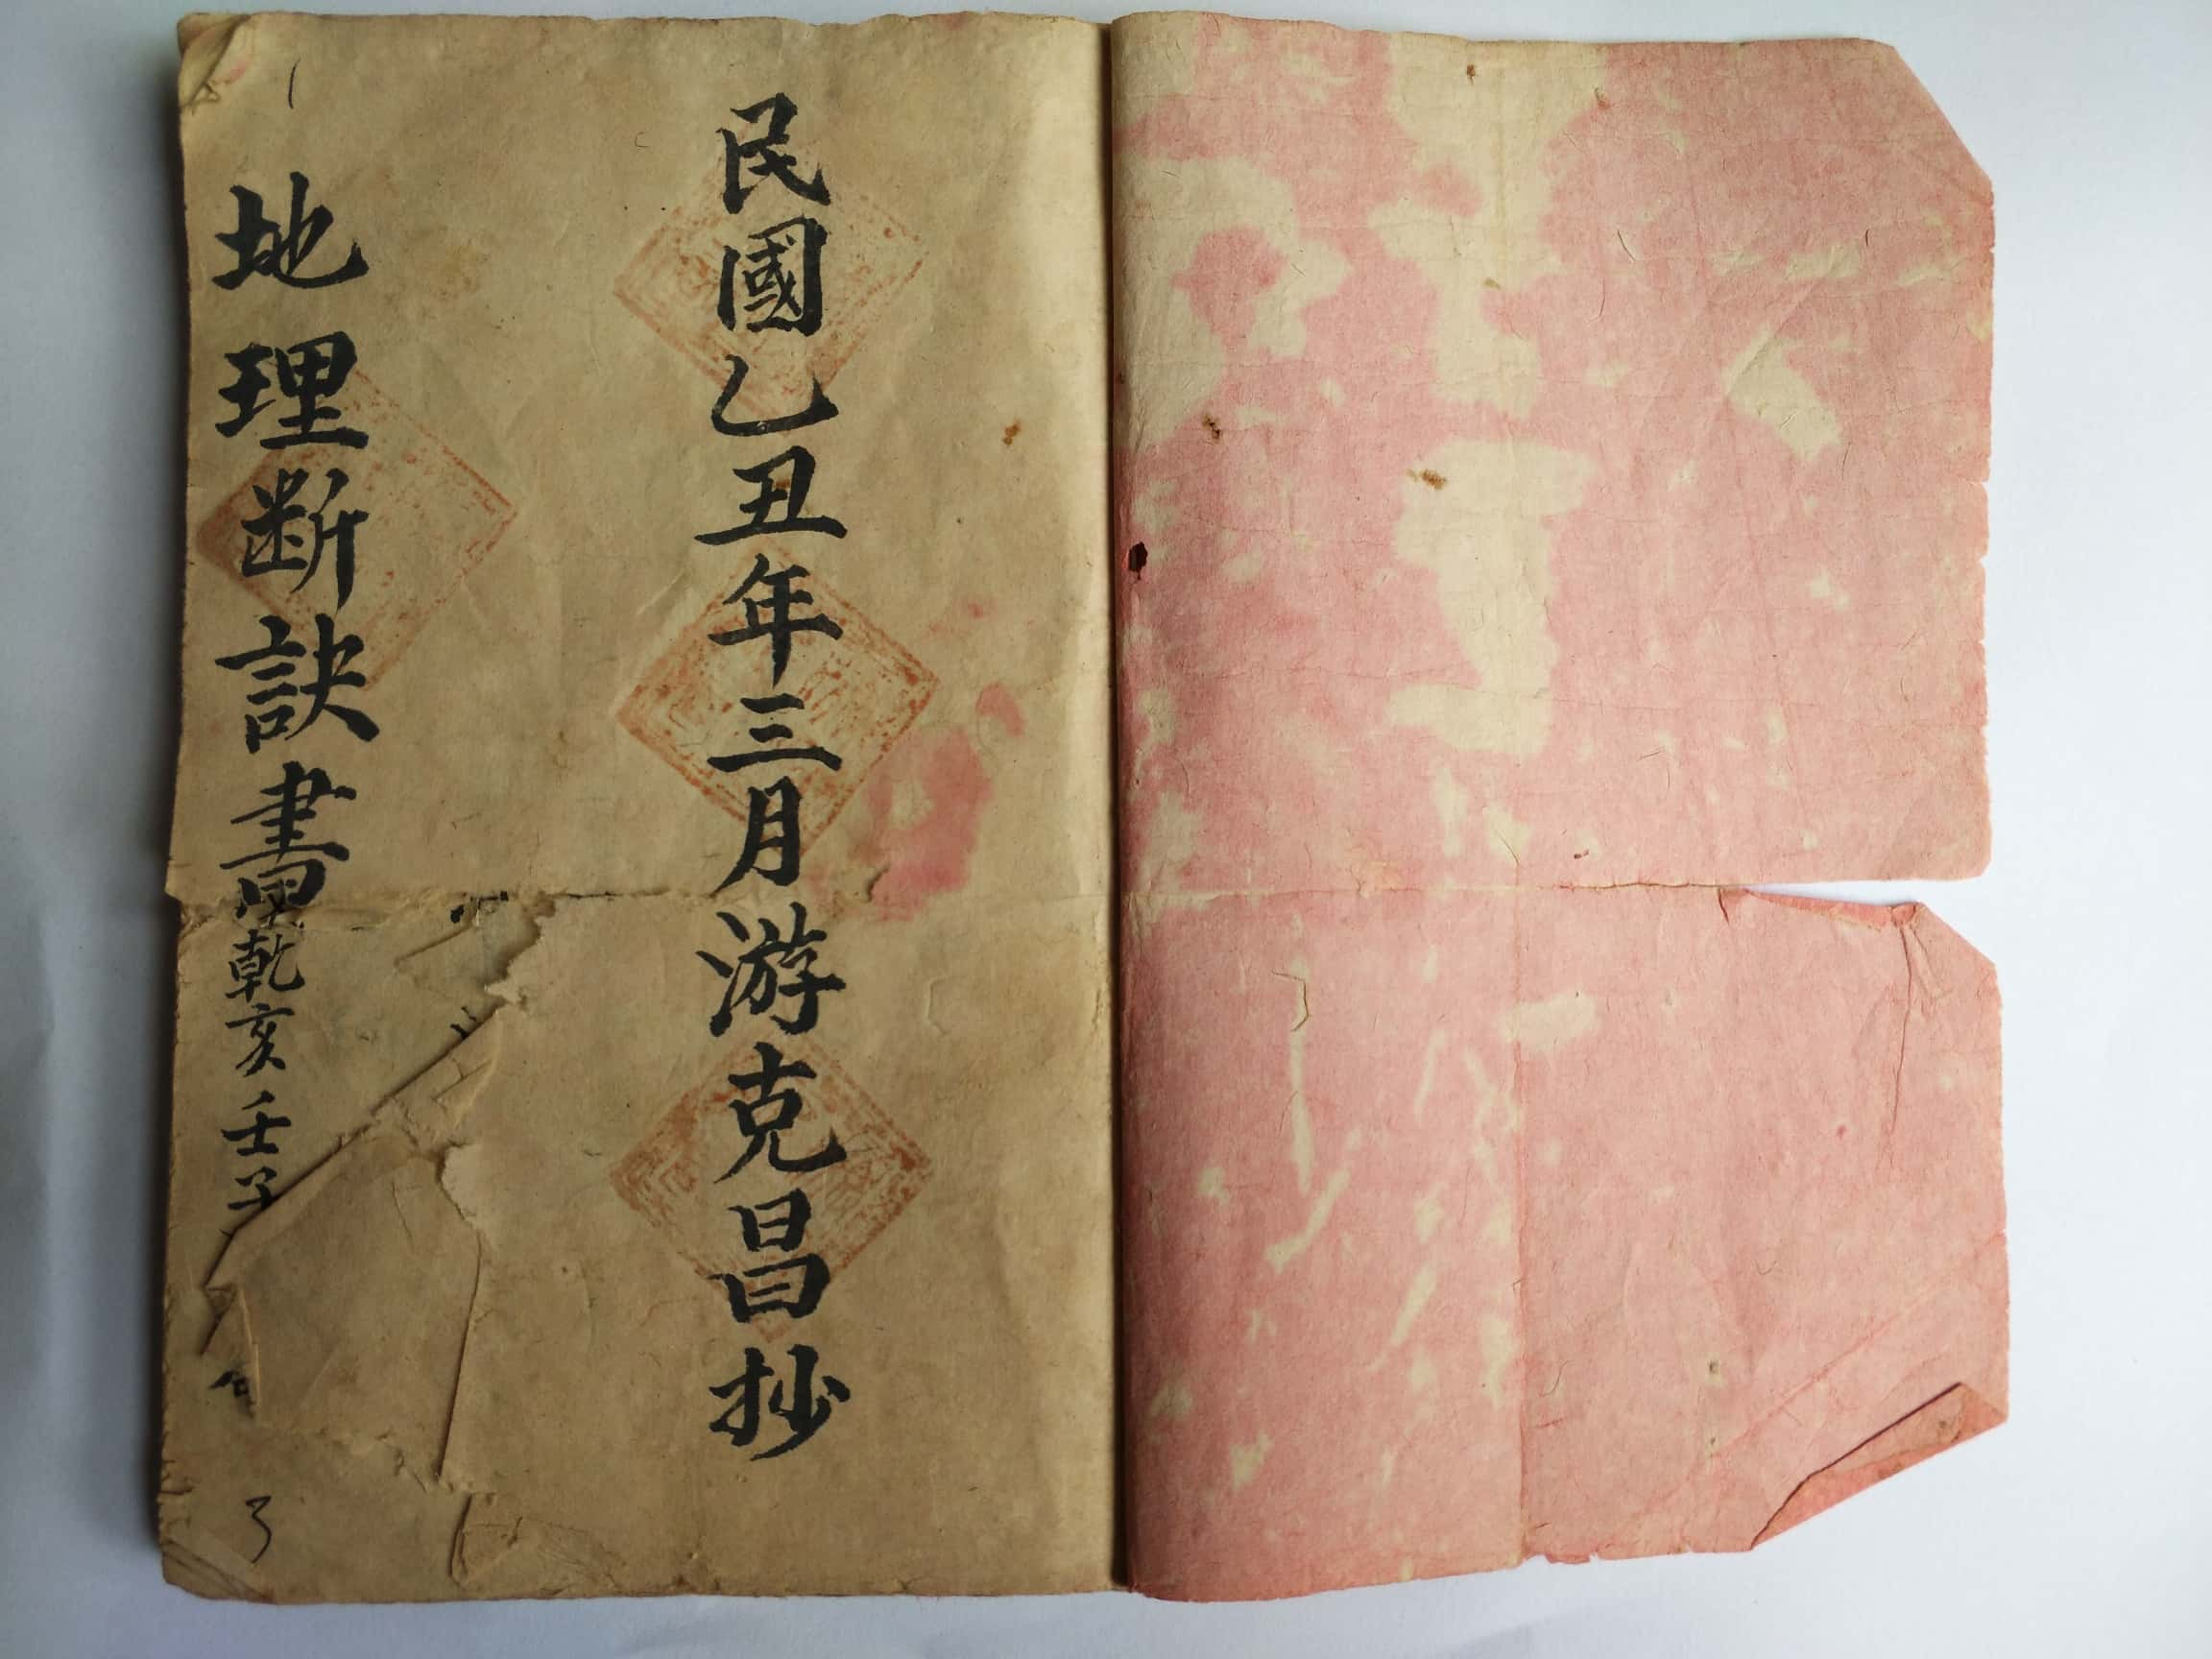 民國乙丑年三月游克昌抄
地理斷訣書乾亥壬子